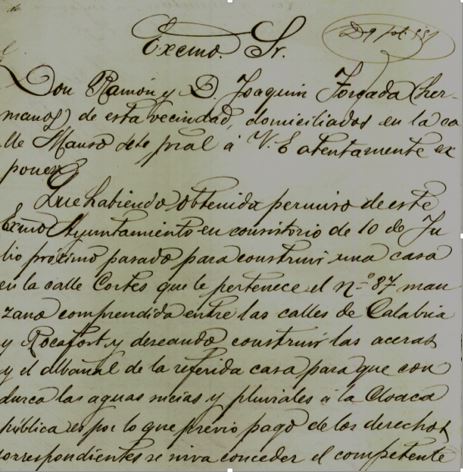 Excmo. Sr.
Don Ramón y D Joaquin Forcada (her-
manos) de esta vecindad, domiciliados en la ca
lle Manso á V. E atentamente ex
ponen
Que habiendo obtenida permiso de este
Exmo Ayuntamiento en consistorio de 10 de Ju
lio próximo pasado para construir una casa
en la calle Cortes que le pertenece el n.º 87 man
zana comprendida entre las calles de Calabria
y Rocafort y deseando construir las aceras
y el albañal de la referida casa para que con
duzca las aguas sucias y pluviales á la Cloaca
pública es por lo que previo pago de los derechos
correspondientes se sirva conceder el competente